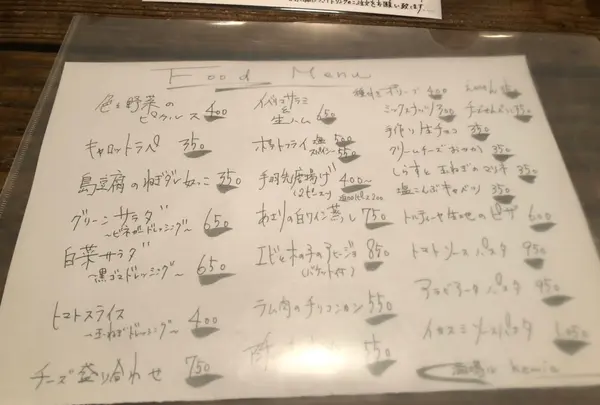 Food Menu
色々野菜の
ピクルス 400
キャロットラペ 350
島豆腐のねぎダレ奴っこ 350
グリーンサラダ
~ビネガードレッシング~ 650
白菜サラダ
~黒ゴマドレッシング~ 650
トマトスライス
~玉ねぎドレッシング~ 400
チーズ盛り合わせ 750
イベリコサラミ
&
生ハム 650
ポテトフライ 塩 500
550
手羽先唐揚げ 400~
(2本~)
あさりの白ワイン蒸し 750
エビときの子のアヒージョ 850
(バケット付)
ラム肉のチリコンカン 550
550
オリーブ 400
ミックスナッツ 300
手作り生チョコ 350
クリームチーズおかか 350
しらすと玉ねぎのマリネ 350
塩こんぶキャベツ 350
トルティーヤ生地のピザ 600
トマトソースパスタ 950
アラビアータパスタ 950
イカスミソースパスタ 1,050
酒場 kemio
350